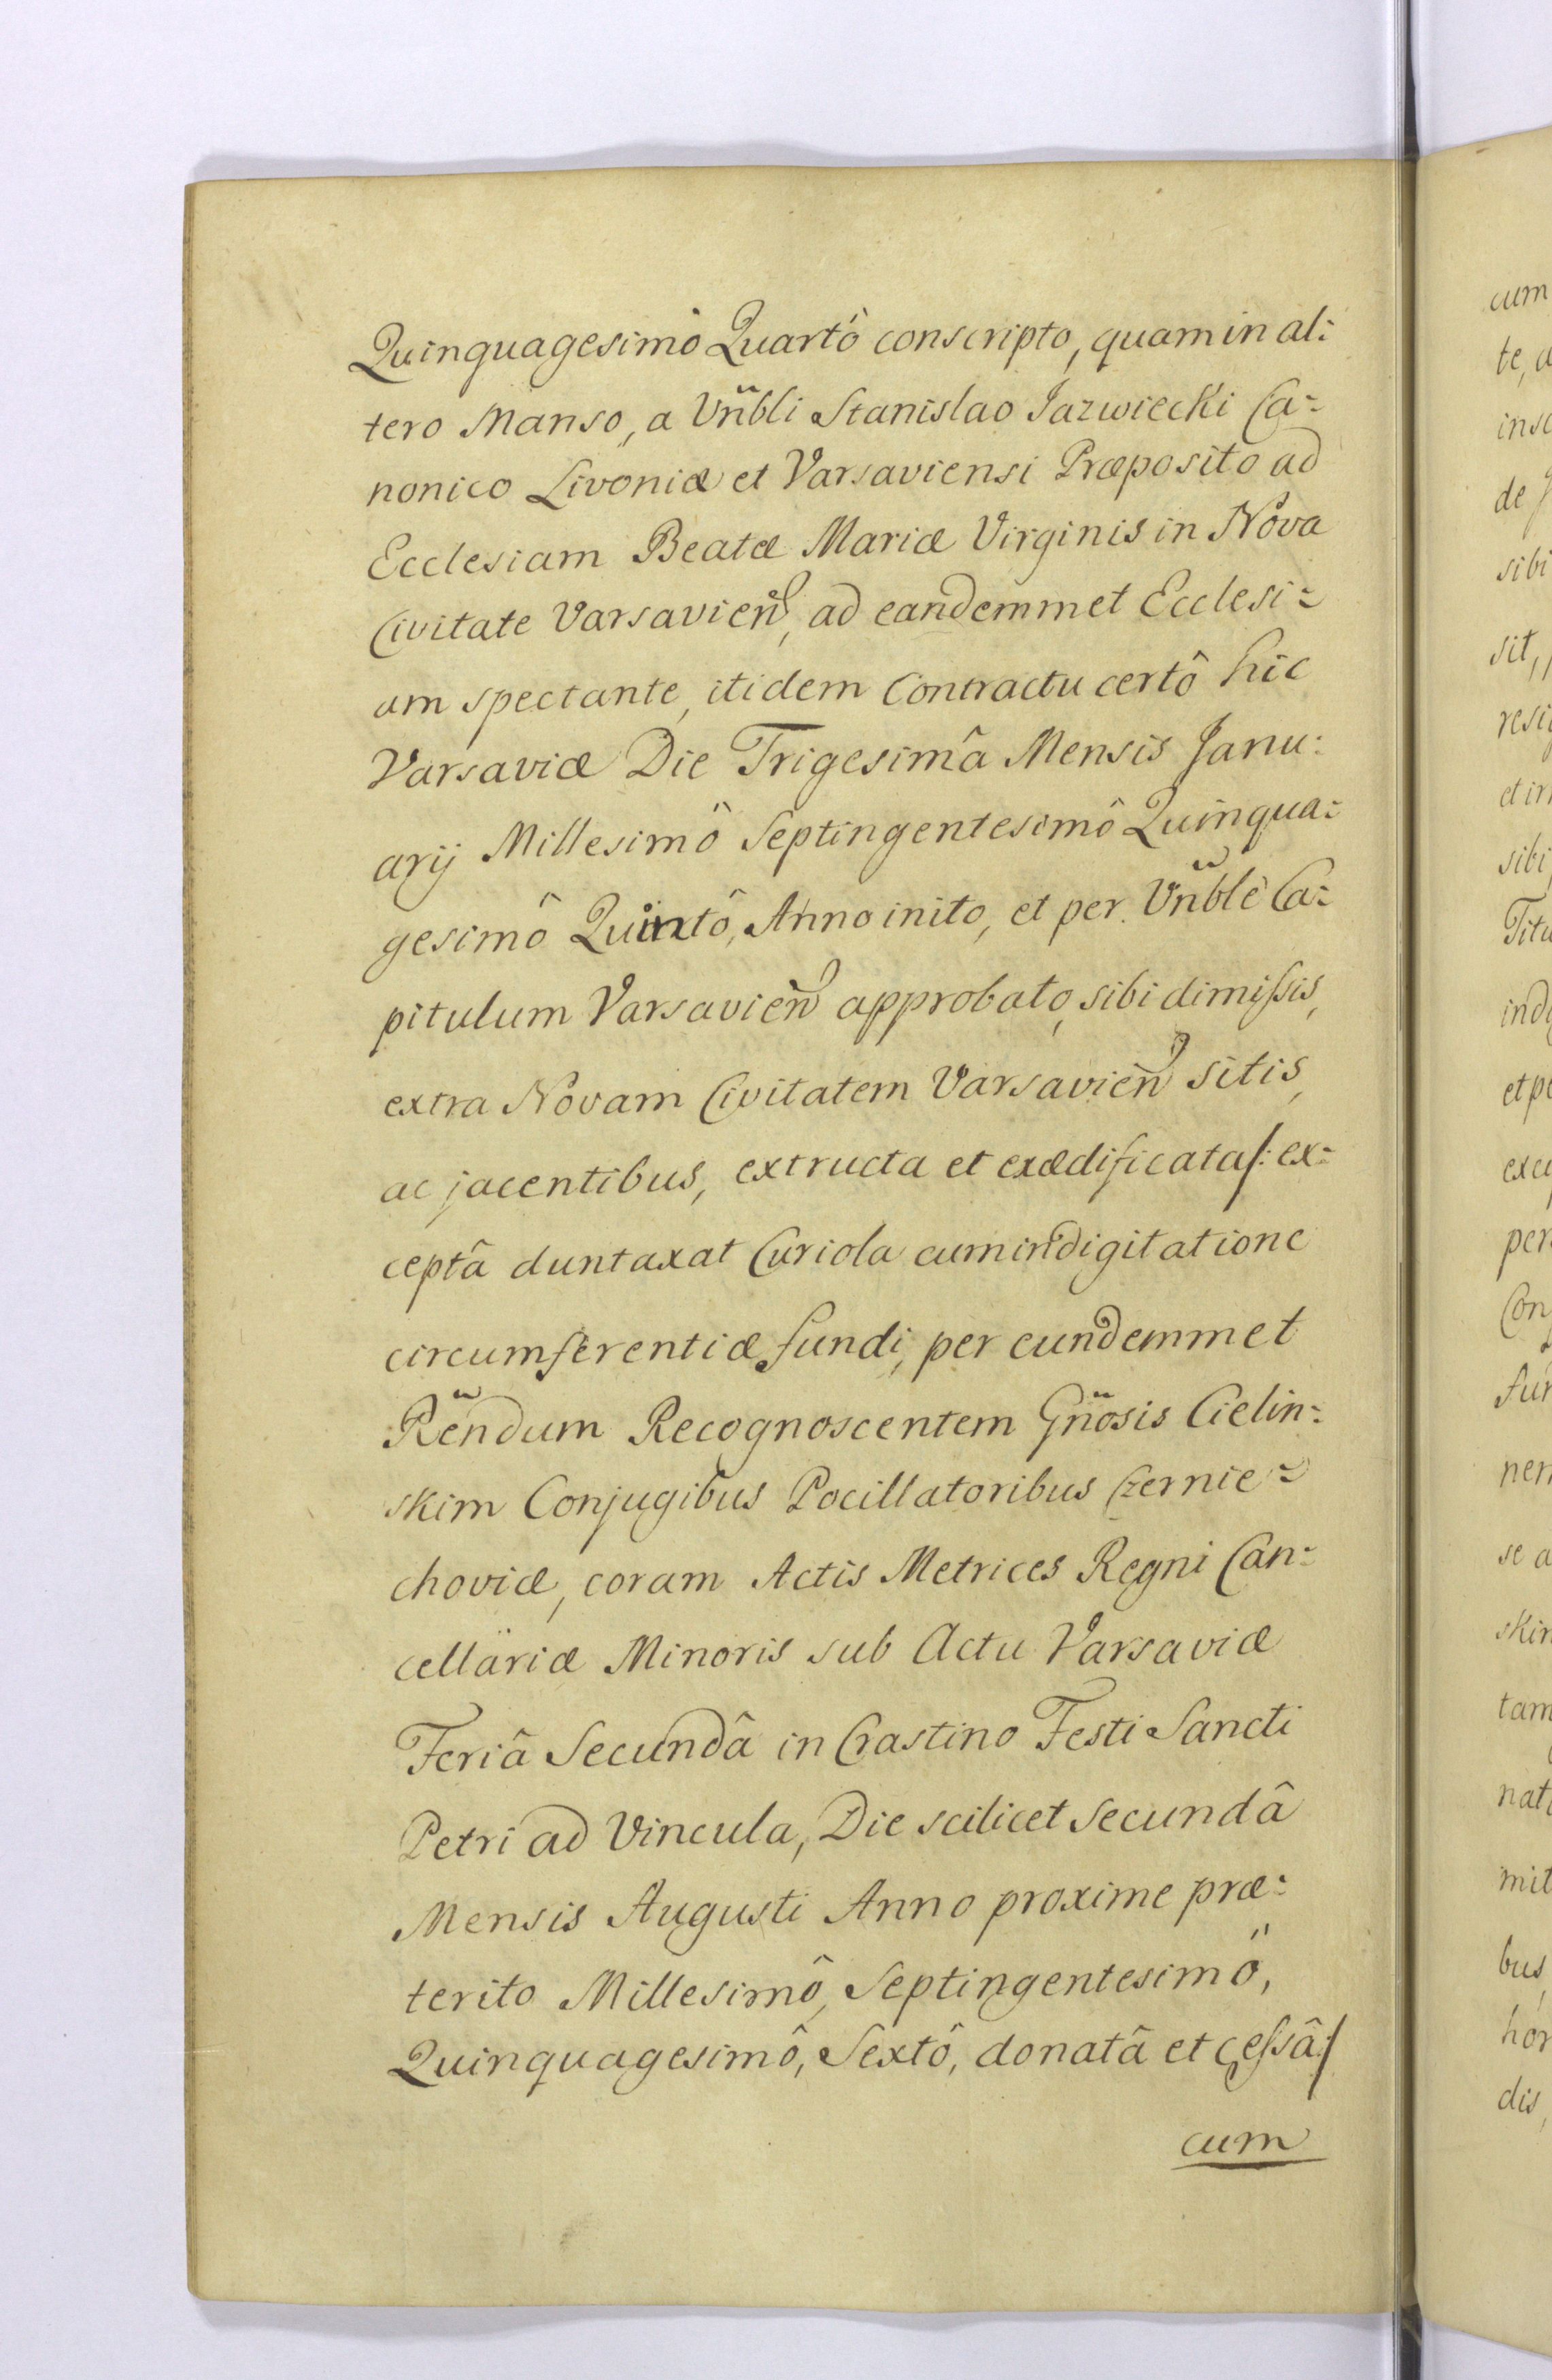 Quinquagesimô Quartô conscripto, quam in al:
tero Manso, a Vñbli Stanislao Jazwiecki Ca:
nonico Livoniæ et Varsaviensi Præposito ad
Ecclesiam Beatæ Mariæ Virginis in Nova
Civitate Varsavieñ, ad eandemmet Ecclesi:
am spectante, itidem Contractu certô hic
Varsaviæ Die Trigesimâ Mensis Janu:
arij Millesimô Septingentesimô Quinqua:
gesimô Quintô, Anno inito, et per Vñble Ca:
pitulum Varsavieñ approbato, sibi dimissis,
extra Novam Civitatem Varsavieñ sitis,
ac jacentibus, extructa et exædificata /: ex:
ceptâ duntaxat Curiola cum indigitatione
circumferentiæ fundi, per eundemmet
Rñdum Recognoscentem Gñosis Cielin:
skim Conjugibus Pocillatoribus Czernie:
choviæ, coram Actis Metrices Regni Can:
cellariæ Minoris sub Actu Varsaviæ
Feriâ Secundâ in Crastino Festi Sancti
Petri ad Vincula, Die scilicet Secundâ
Mensis Augusti Anno proxime præ:
terito Millesimô, Septingentesimô,
Quinquagesimô, Sextô, donatâ et cessâ :/
cum
cum
te, a
insc
de
sibi
sit,
resi
et ir
sibi
Titu
ind
et pe
exc
per
Con
fun
nem
se a
skim
tam
nat
mit
bus
hor
dis,